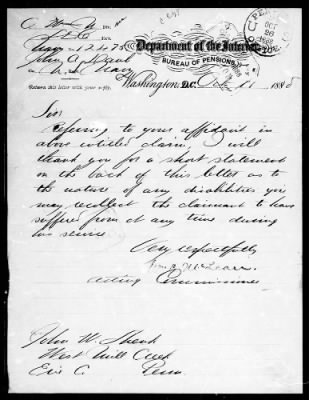 Navy 12475
John A.
U.S. Navy
Department of the Interior,
BUREAU OF PENSIONS,
Washington, D.C. Oct 11, 188
Return this letter with your reply.
Sir:
Referring to your affidavit in
above entitled claim, I will
thank you for a short statement
on the back of this letter as to
the nature of any disabilities you
may recollect the claimant to have
suffered from at any time during
his service
Very respectfully
Acting Commissioner
John W. Shenk
West Mill Creek
Erie C. Penn.